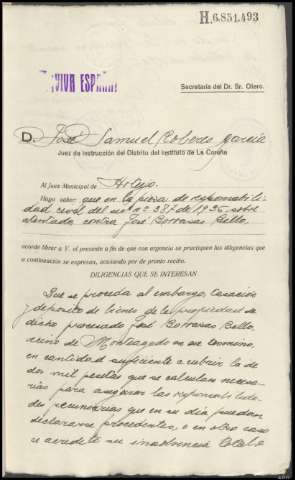 H.6851.493
¡VIVA ESPAÑA!
Secretaria del Dr. Sr. Otero.
D. José Samuel Roberes García
Juez de Instrucción del Distrito del Instituto de La Coruña
Al Juez Municipal de Arteijo.
Hago saber: que en la pieza de responsabili
dad civil del nº 387 de 1936 sobre
atentado contra José Borrasas Bello,
acordé librar a V. el presente a fin de que con urgencia se practiquen las diligencias que
a continuación se expresan, acusando por de pronto recibo.
DILIGENCIAS QUE SE INTERESAN
Que se proceda al embargo, tasación
y depósito de bienes de la propiedad de
dicho procesado José Borrasas Bello,
vecino de Monteagudo en ese término,
en cantidad suficiente a cubrir la de
dos mil pesetas que se calculan necesa-
rias para asegurar las responsabilida-
des pecuniarias que en su día puedan
declararse procedentes, o en otro caso
se acredite su insolvencia total o